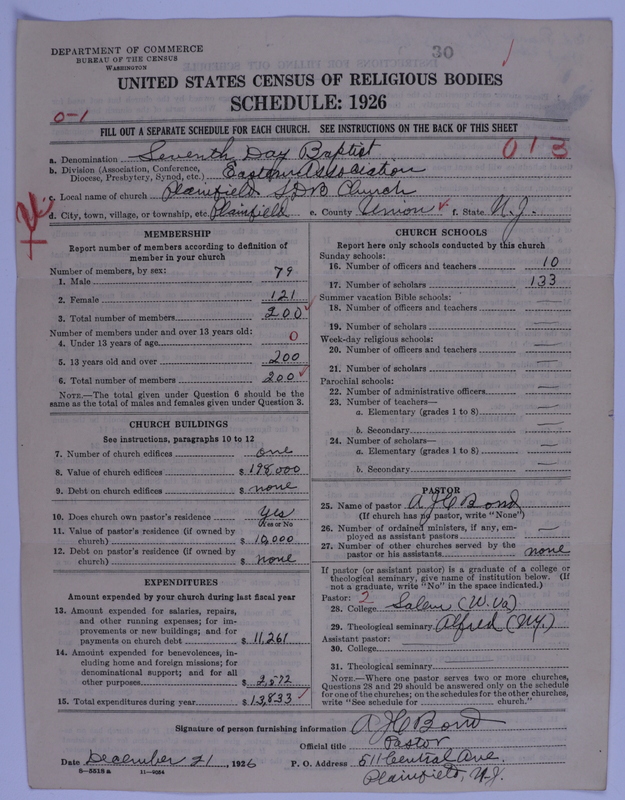 30
DEPARTMENT OF COMMERCE
BUREAU OF THE CENSUS
WASHINGTON
UNITED STATES CENSUS OF RELIGIOUS BODIES
SCHEDULE: 1926
0-1
FILL OUT A SEPARATE SCHEDULE FOR EACH CHURCH. SEE INSTRUCTIONS ON THE BACK OF THIS SHEET
013
a. Denomination Seventh Day Baptist
b. Division (Association, Conference, Diocese, Presbytery, Synod, etc.) Eastern Association
c. Local name of church Plainfield SDB Church
d. City, town, village, or township, etc. Plainfield e. County Union f. State N.J.
MEMBERSHIP
Report number of members according to definition of
member in your church
Number of members, by sex:
1. Male 79
2. Female 121
3. Total number of members 200
Number of members under and over 13 years old:
4. Under 13 years of age 0
5. 13 years old and over 200
6. Total number of members 200
NOTE.—The total given under Question 6 should be
same as the total of males and females given under Question 3.
CHURCH BUILDINGS
See instructions, paragraphs 10 to 12
7. Number of church edifices one
8. Value of church edifices $ 198,000
9. Debt on church edifices $ none
10. Does church own pastor's residence yes
Yes or No
11. Value of pastor's residence (if owned by
church) $ 10,000
12. Debt on pastor's residence (if owned by
church) $ none
EXPENDITURES
Amount expended by your church during last fiscal year
13. Amount expended for salaries, repairs,
and other running expenses; for im-
provements or new buildings; and for
payments on church debt $ 11,261
14. Amount expended for benevolences, in-
cluding home and foreign missions; for
denominational support; and for all
other purposes $ 2,572
15. Total expenditures during year $ 13,833
CHURCH SCHOOLS
Report here only schools conducted by this church
Sunday schools:
16. Number of officers and teachers 10
17. Number of scholars 133
Summer vacation Bible schools:
18. Number of officers and teachers —
19. Number of scholars —
Week-day religious schools:
20. Number of officers and teachers —
21. Number of scholars —
Parochial schools:
22. Number of administrative officers —
23. Number of teachers—
a. Elementary (grades 1 to 8) —
b. Secondary —
24. Number of scholars—
a. Elementary (grades 1 to 8) —
b. Secondary —
PASTOR
25. Name of pastor A J C Bond
(If church has no pastor, write "None")
26. Number of ordained ministers, if any, em-
ployed as assistant pastors —
27. Number of other churches served by the
pastor or his assistants none
If pastor (or assistant pastor) is a graduate of a college or
theological seminary, give name of institution below. (If
not a graduate, write "No" in the space indicated.)
Pastor: 2
28. College Salem (W. Va)
29. Theological seminary Alfred (N.Y.)
Assistant pastor:
30. College
31. Theological seminary
NOTE.—Where one pastor serves two or more churches,
Questions 28 and 29 should be answered only on the schedule
for one of the churches; on the schedules for the other churches,
write "See schedule for church."
Signature of person furnishing information A J C Bond
Official title Pastor
Date December 21, 1926 P. O. Address 511 Central Ave.
Plainfield, N.J.
8-5518 a 11-9054